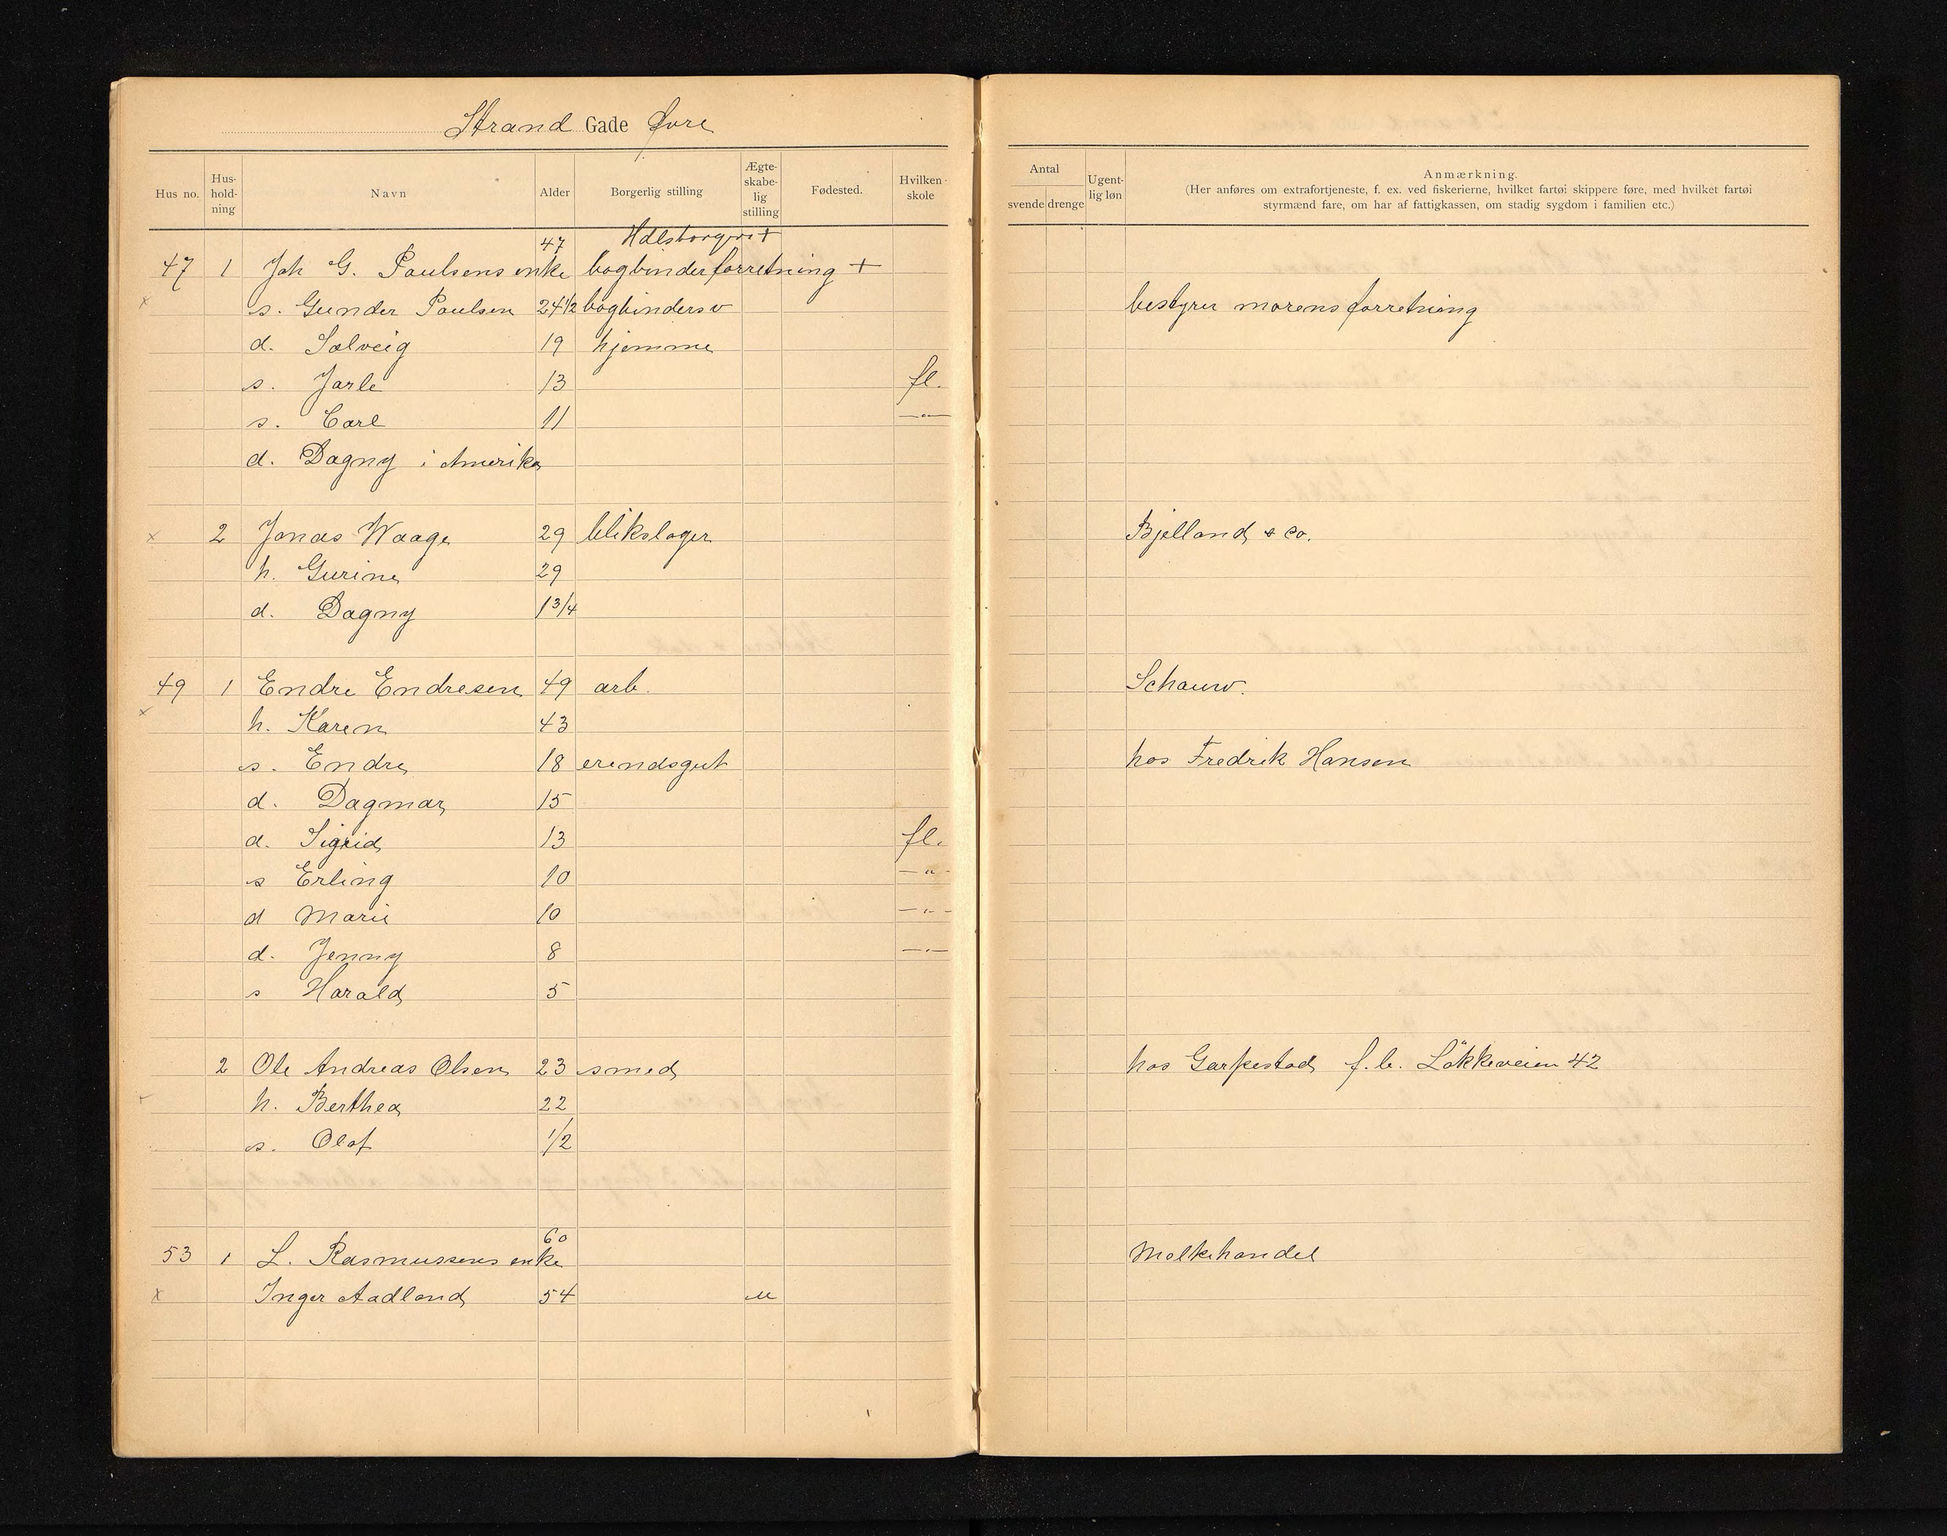 Strand Gade Øvre
Hus no. Hus-hold-ning Navn Alder Borgerlig stilling Ægte-skabe-lig stilling Fødested. Hvilken skole Antal svende drenge Ugent-lig løn Anmærkning.
(Her anføres om extrafortjeneste, f. ex. ved fiskerierne, hvilket fartøi skippere føre, med hvilket fartøi
styrmænd fare, om har af fattigkassen, om stadig sygdom i familien etc.)
47 Hdlsborgeri +
47 1 Joh G. Paulsens enke bogbinderforretning +
x s. Gunder Paulsen 24 1/2 bogbindersv bestyrer morens forretning
d. Solveig 19 hjemme
s. Jarle 13 fl.
s. Carl 11 —"—
d. Dagny i Amerika
x 2 Jonas Waage 29 blikslager Bjelland & co.
h. Gurine 29
d. Dagny 1 3/4
49 1 Endre Endresen 49 arb. Schouw.
x h. Karen 43
s. Endre 18 erendsgut hos Fredrik Hansen
d. Dagmar 15
d. Sigrid 13 fl.
s Erling 10 —"—
d Marie 10 —"—
d. Jenny 8 —"—
s Harald 5
2 Ole Andreas Olsen 23 smed hos Garpestad f.b. Lökkeveien 42
h. Berthea 22
s. Olaf 1/2
60
53 1 L. Rasmussens enke Melkehandel
x Inger Aadland 54 u